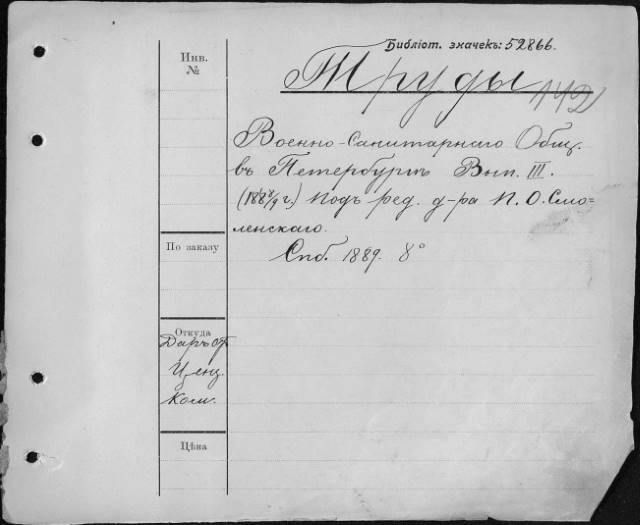 Библіот. значекъ: 52866.
Инв. №
Труды
142
Военно-Санитарнаго Общ.
въ Петербургѣ Вып. III.
(1888/9 г.) подъ ред. д-ра П. О. Смо=
ленскаго.
По заказу
Спб. 1889. 8°
Откуда
Даръ От
Ценз.
Ком.
Цѣна